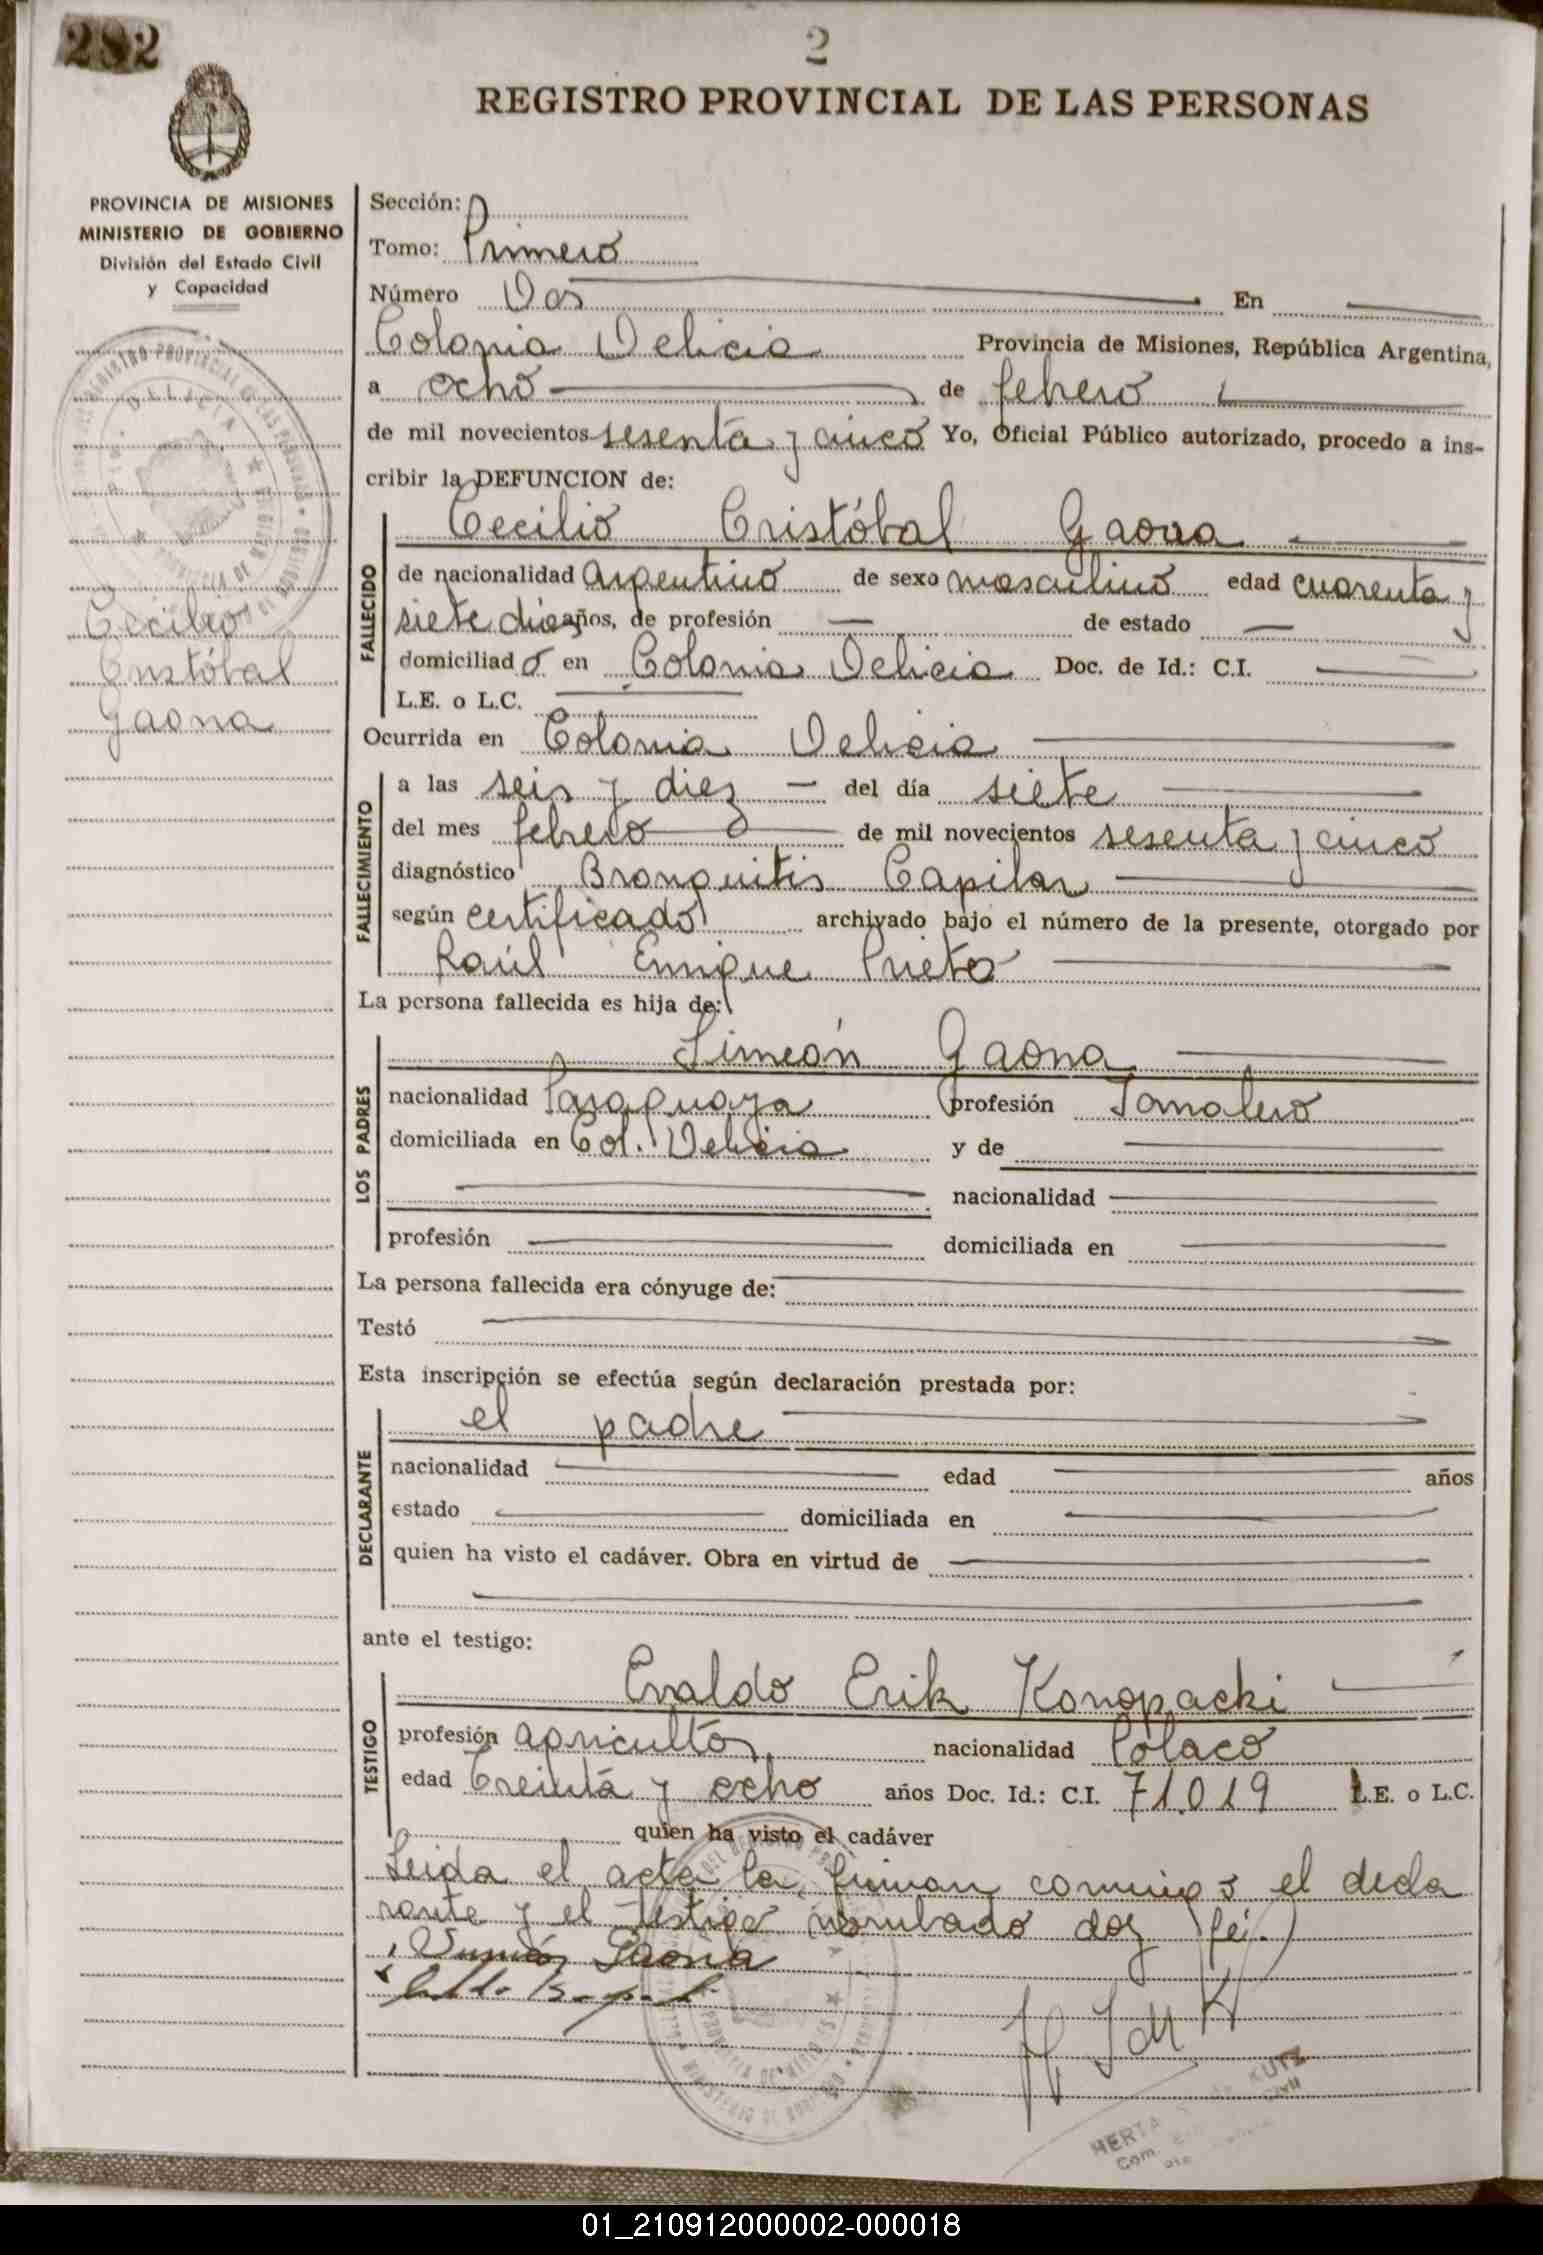 282
2
REGISTRO PROVINCIAL DE LAS PERSONAS
PROVINCIA DE MISIONES
MINISTERIO DE GOBIERNO
División del Estado Civil
y Capacidad
Cecilio
Cristóbal
Gaona
Sección:
Tomo: Primero
Número Dos En
Colonia Delicia Provincia de Misiones, República Argentina,
a ocho de febrero
de mil novecientos sesenta y cinco Yo, Oficial Público autorizado, procedo a ins-
cribir la DEFUNCION de:
Cecilio Cristóbal Gaona
FALLECIDO
de nacionalidad Argentino de sexo masculino edad cuarenta y
siete dias años, de profesión de estado
domiciliado en Colonia Delicia Doc. de Id.: C.I.
L.E. o L.C.
Ocurrida en Colonia Delicia
FALLECIMIENTO
a las seis y diez del día siete
del mes febrero de mil novecientos sesenta y cinco
diagnóstico Bronquitis Capilar
según certificado archivado bajo el número de la presente, otorgado por
Raúl Enrique Prieto
La persona fallecida es hija de:
LOS PADRES
Simeón Gaona
nacionalidad Paraguaya profesión Jornalero
domiciliada en Col. Delicia y de
nacionalidad
profesión domiciliada en
La persona fallecida era cónyuge de:
Testó
Esta inscripción se efectúa según declaración prestada por:
DECLARANTE
el padre
nacionalidad edad años
estado domiciliada en
quien ha visto el cadáver. Obra en virtud de
ante el testigo:
TESTIGO
Evaldo Erik Konopacki
profesión agricultor nacionalidad Polaco
edad Treinta y ocho años Doc. Id.: C.I. 71.019 L.E. o L.C.
quien ha visto el cadáver
Leida el acta la firman conmigo el decla
rante y el testigo nombrado doy fé.
Gaona
HERTA KUTZ
01_210912000002-000018